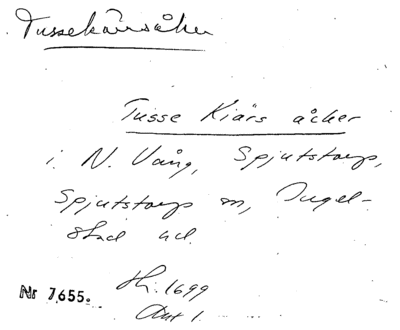 Tussekärsåker
Tusse Kiärs åcker
i N. Vång, Spjutstorp,
Spjutstorps sn, Ingel-
stad hd.
Hr. 1699
Akt 1.
Nr 7655.